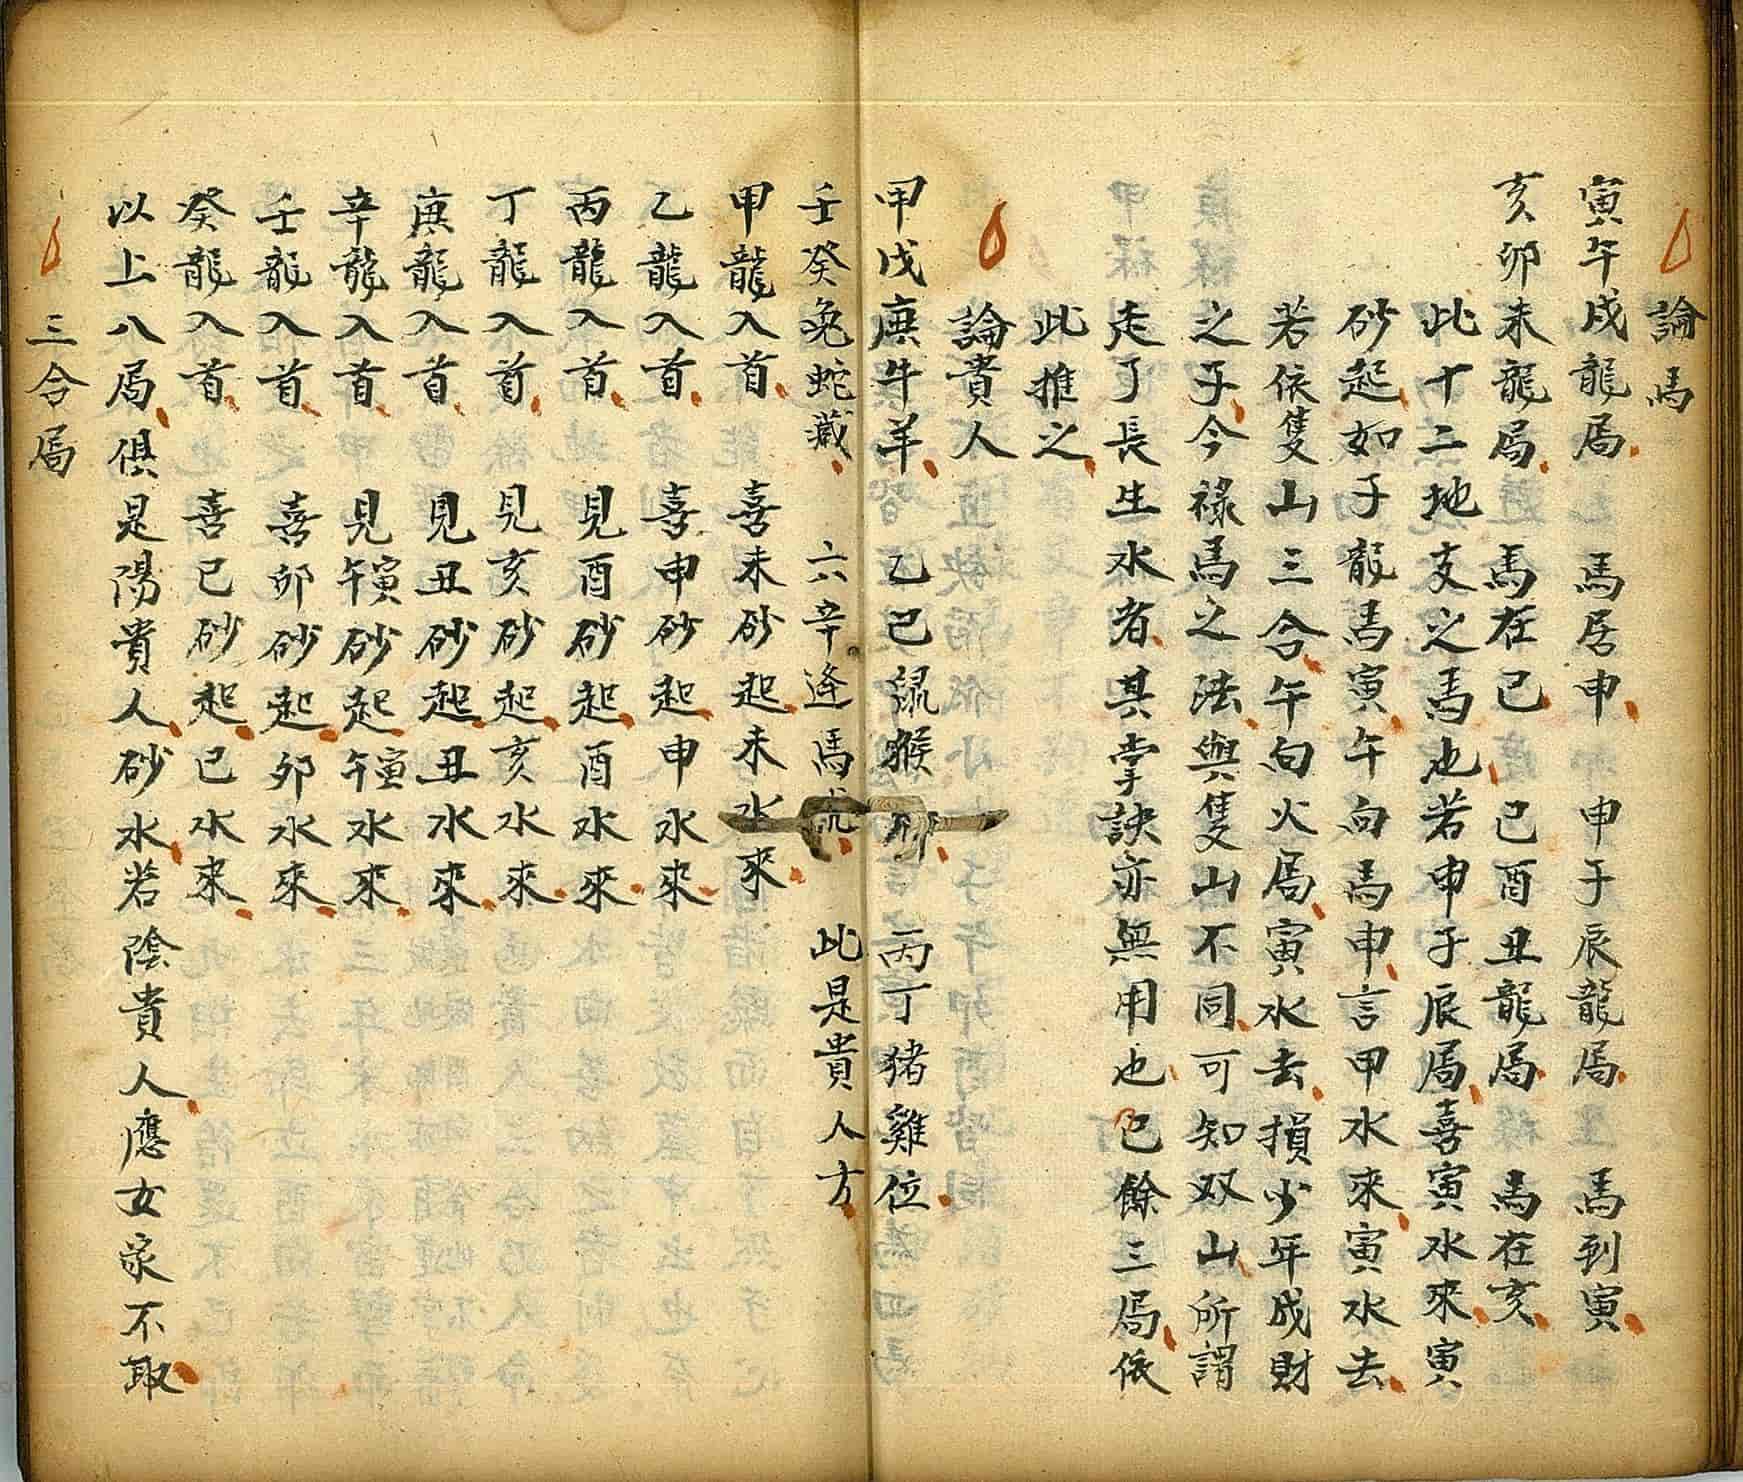 論馬
寅午戌龍局 馬居申 申子辰龍局 馬到寅
亥卯未龍局 馬在巳 巳酉丑龍局 馬在亥
此十二地支之馬也若申子辰局喜寅水來寅
砂起如子龍馬寅午向馬申言甲水來寅水去
若依隻山三合午向火局寅水去損少年成財
之子今祿馬之法與隻山不同可知双山所謂
走了長生水者其掌訣亦無用也已餘三局依
此推之
論貴人
甲戊庚牛羊 乙己鼠猴 丙丁猪雞位
壬癸兔蛇藏 六辛逢馬虎 此是貴人方
甲龍入首 喜未砂起未水來
乙龍入首 喜申砂起申水來
丙龍入首 見酉砂起酉水來
丁龍入首 見亥砂起亥水來
庚龍入首 見丑砂起丑水來
辛龍入首 見午寅砂起午寅水來
壬龍入首 喜卯砂起卯水來
癸龍入首 喜巳砂起巳水來
以上八局俱是陽貴人砂水若陰貴人應女家不取
三合局